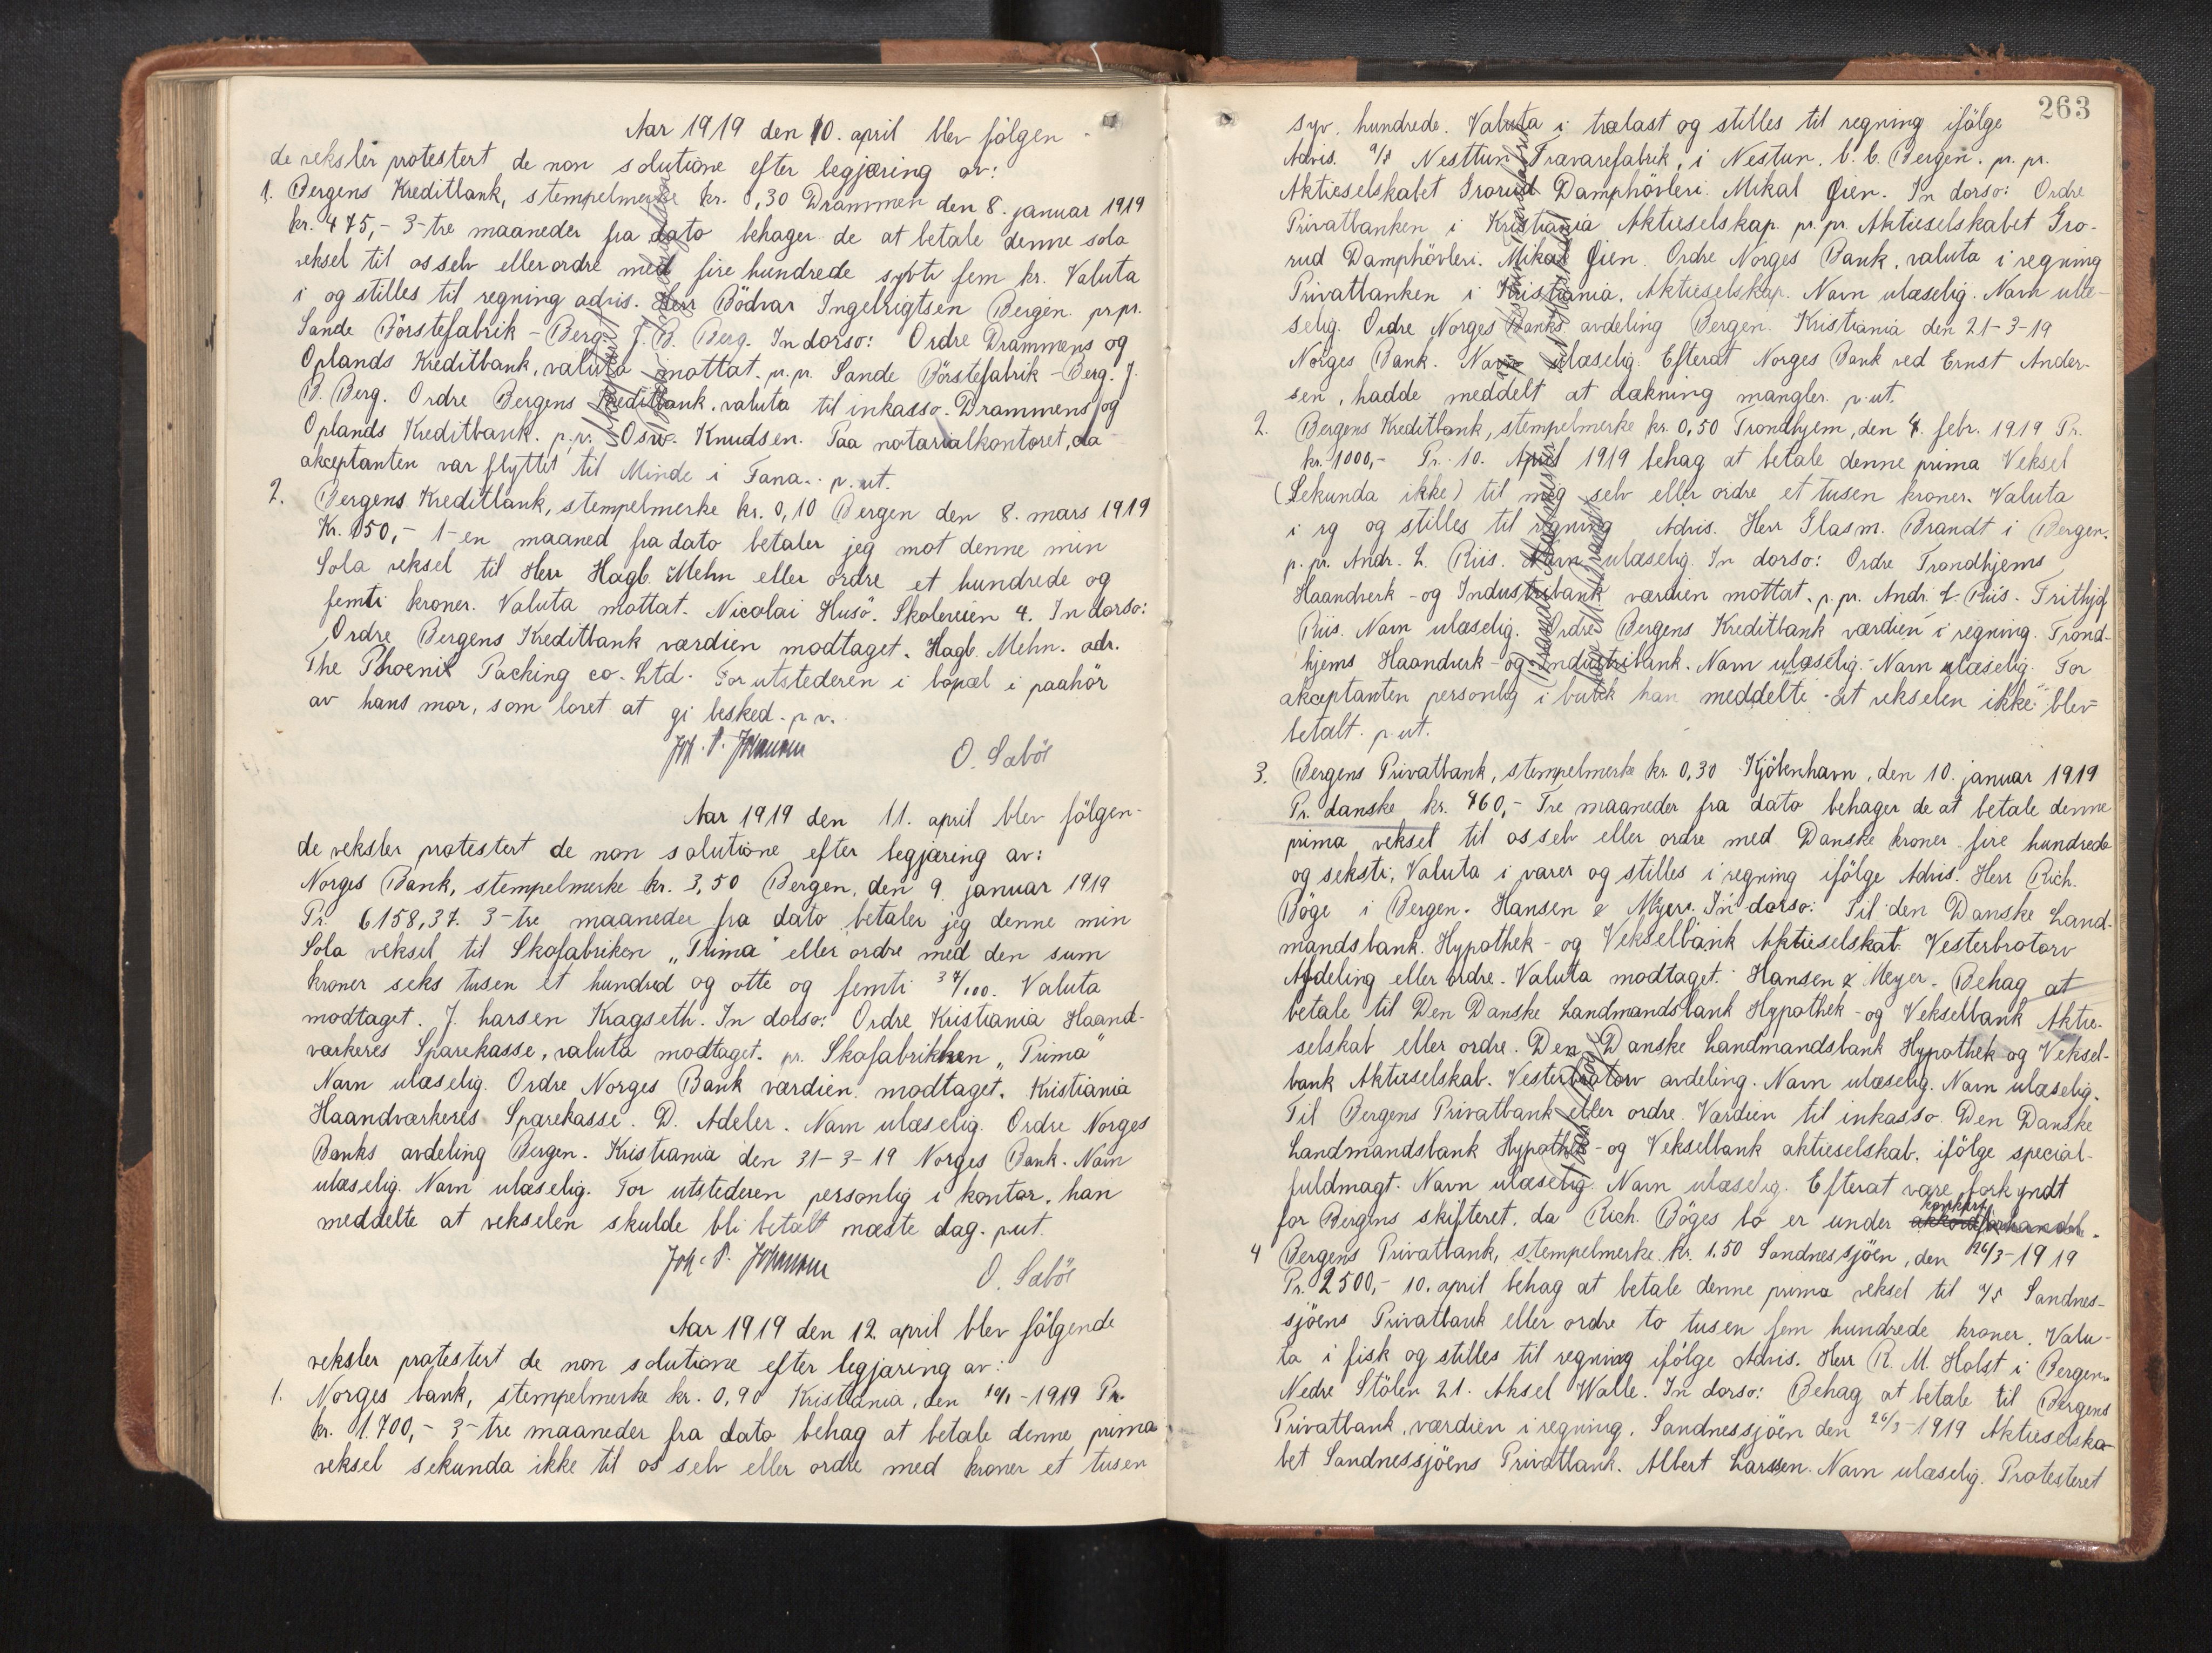 Aar 1919 den 10. april blev følgen-
de veksler protestert de non solutione efter begjæring av:
1. Bergens Kreditbank, stempelmerke kr. 0,30 Drammen den 8. januar 1919
kr. 475,- 3-tre maaneder fra dato behager de at betale denne sola
veksel til os selv eller ordre med fire hundrede sytti fem kr. Valuta
i og stilles til regning advis. Herr Bödvar Ingebrigtsen Bergen. pr pr.
Sande Börstefabrik - Berg. J. B. Berg. In dorso: Ordre Drammens og
Oplands Kreditbank, valuta mottat. pr. pr. Sande Börstefabrik - Berg. J.
B. Berg. Ordre Bergens Kreditbank. valuta til inkasso. Drammens og
Oplands Kreditbank. p. pr. Osw. Knudsen. Paa notarialkontoret, da
akceptanten var flyttet til Minde i Fana. p. ut.
2. Bergens Kreditbank, stempelmerke kr. 0,10 Bergen den 8. mars 1919
Kr. 150,- 1-en maaned fra dato betaler jeg mot denne min
Sola veksel til Herr Hagb. Mehn eller ordre et hundrede og
femti kroner. Valuta mottat. Nicolai Husö. Skoleveien 4. In dorso:
Ordre Bergens Kreditbank værdien modtaget. Hagb. Mehn. adr.
The Phoenix Packing co. Ltd. For utstederen i bopæl i paahör
av hans mor, som loret at gi besked. p. v.
Joh. P. Johannesen O. Sæböe
Aar 1919 den 11. april blev fölgen-
de veksler protestert de non solutione efter begjæring av:
Norges Bank, stempelmerke kr. 3,50 Bergen, den 9. januar 1919
Pr. 6158,37. 3-tre maaneder fra dato betaler jeg denne min
Sola veksel til Skofabriken "Prima" eller ordre med den sum
kroner seks tusen et hundred og otte og femti 37/100. Valuta
modtaget. J. Larsen Kragseth. In dorso: Ordre Kristiania Haand-
værkeres Sparekasse, valuta modtaget. pr. Skofabrikken "Prima"
Navn ulæselig. Ordre Norges Bank værdien modtaget. Kristiania
Haandværkeres Sparekasse. D. Adeler. Navn ulæselig. Ordre Norges
Banks avdeling Bergen. Kristiania den 31-3-19 Norges Bank. Navn
ulæselig. Navn ulæselig. For utstederen personlig i kontor, han
meddelte at vekselen skulde bli betalt næste dag. p. ut.
Joh. P. Johannesen O. Sæböe
Aar 1919 den 12. april blev fölgende
veksler protestert de non solutione efter begjæring av:
1. Norges bank, stempelmerke kr. 0,90 Kristiania, den 10/1-1919 Pr.
kr. 1.700,- 3-tre maaneder fra dato behag at betale denne prima
veksel sekunda ikke til os selv eller ordre med kroner et tusen
263
syv. hundrede. Valuta i trælast og stilles til regning ifölge
Advis. a/s Nesttun Trævarefabrik, i Nestun. b. b. Bergen. pr. pr.
Aktieselskabet Grorud Damphövleri. Mikal Öien. In dorso: Ordre
Privatbanken i Kristiania Aktieselskap. pr. pr. Aktieselskabet Gro-
rud Damphövleri. Mikal Öien. Ordre Norges Bank, valuta i regning
Privatbanken i Kristiania. Aktieselskap. Navn ulæselig. Navn ulæ-
selig. Ordre Norges Banks avdeling Bergen. Kristiania den 21-3-19
Norges Bank. Navn ulæselig. Efterat Norges Bank ved Ernst Ander-
sen, hadde meddelt at dækning mangler. p. ut.
2. Bergens Kreditbank, stempelmerke kr. 0,50 Trondhjem, den 4. febr. 1919 Pr.
kr. 1000,- Pr. 10. April 1919 behag at betale denne prima Veksel
(Sekunda ikke) til mig selv eller ordre et tusen kroner. Valuta
i rg og stilles til regning Advis. Herr Glasm. Brandt i Bergen.
p. pr. Andr. L. Riis. Navn ulæselig. In dorso: Ordre Trondhjems
Haandverk- og Industribank værdien mottat. p. pr. Andr. L. Riis. Frithjof
Riis. Navn ulæselig. Ordre Bergens Kreditbank værdien i regning. Trond-
hjems Haandverk- og Industribank. Navn ulæselig. Navn ulæselig. For
akceptanten personlig i butik han meddelte at vekselen ikke blev
betalt. p. ut.
3. Bergens Privatbank, stempelmerke kr. 0,30 Kjöbenhavn, den 10. januar 1919
Pr. danske kr. 460,- Tre maaneder fra dato behager de at betale denne
prima veksel til os selv eller ordre med Danske kroner fire hundrede
og seksti, Valuta i varer og stilles i regning ifölge Advis. Herr Rich.
Böge i Bergen. Hansen & Meyer. In dorso: Til den Danske Land-
mandsbank. Hypothek- og Vekselbank Aktieselskab Vesterbrotorv
Afdeling eller ordre. Valuta modtaget. Hansen & Meyer. Behag at
betale til Den Danske Landmandsbank Hypothek- og Vekselbank Aktie-
selskab eller ordre. Den Danske Landmandsbank Hypothek og Veksel-
bank Aktieselskab. Vesterbrotorv avdeling. Navn ulæselig. Navn ulæselig.
Til Bergens Privatbank eller ordre. Værdien til inkasso. Den Danske
Landmandsbank Hypothek- og Vekselbank aktieselskab. ifölge special-
fuldmagt. Navn ulæselig. Navn ulæselig. Efterat være forkyndt
for Bergens skifteret, da Rich. Böges bo er under konkurs
4 Bergens Privatbank, stempelmerke kr. 1.50 Sandnessjöen, den 26/3-1919
Pr. 2500,- 10. april behag at betale denne prima veksel til a/s Sandnes-
sjöens Privatbank eller ordre to tusen fem hundrede kroner. Valu-
ta i fisk og stilles til regning ifölge Advis. Herr R. M. Holst i Bergen.
Nedre Stölen 21. Aksel Walle. In dorso: Behag at betale til Bergens
Privatbank, værdien i regning. Sandnessjöen den 26/3-1919 Aktieselska-
bet Sandnessjöens Privatbank. Albert Larssen. Navn ulæselig. Protesteret